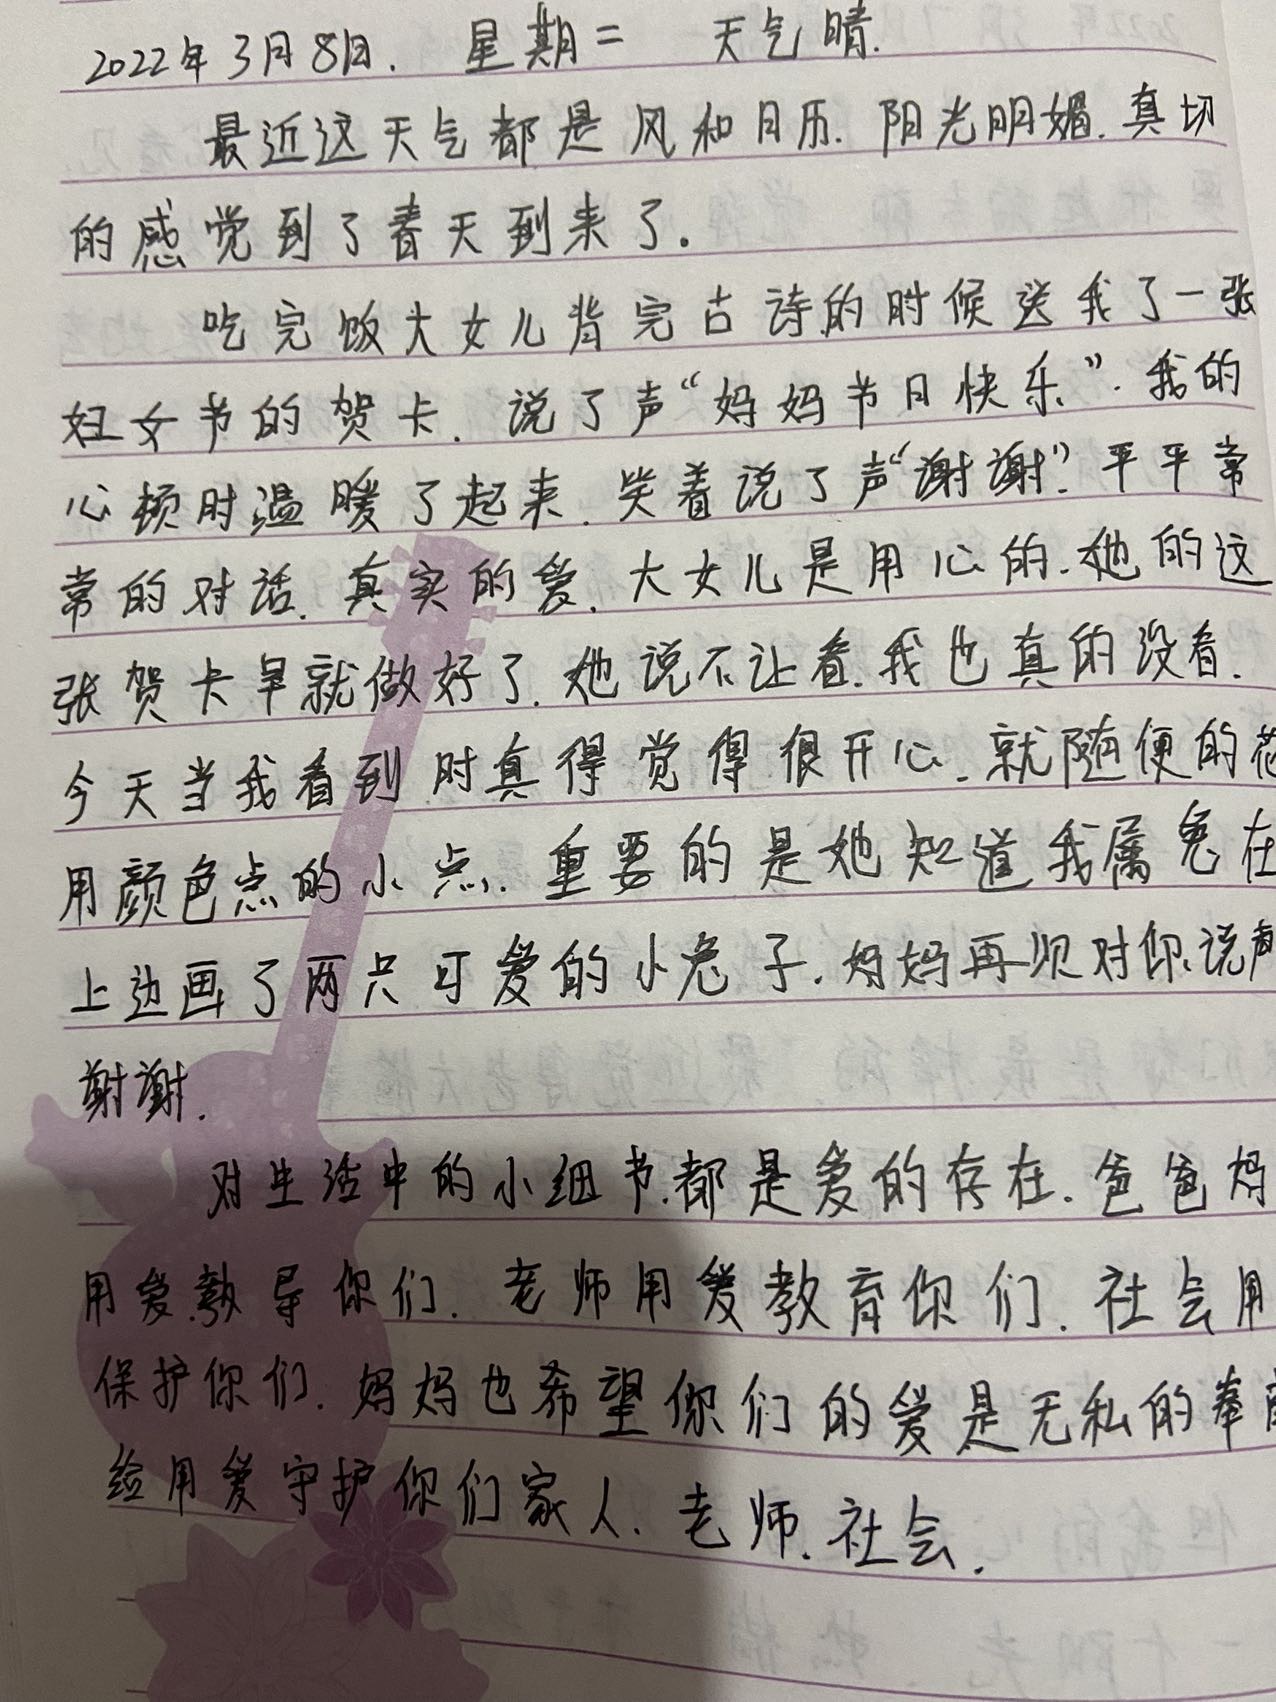 2022年3月8日. 星期二 天气晴.
最近这天气都是风和日历.阳光明媚.真切
的感觉到了春天到来了.
吃完饭大女儿背完古诗的时候送我了一张
妇女节的贺卡.说了声“妈妈节日快乐”.我的
心顿时温暖了起来.笑着说了声“谢谢”.平平常
常的对话.真实的爱.大女儿是用心的.她的这
张贺卡早就做好了.她说不让看.我也真的没看.
今天当我看到时真得觉得很开心.就随便的花
用颜色点的小点.重要的是她知道我属兔在
上边画了两只可爱的小兔子.妈妈再次对你说声
谢谢.
对生活中的小细节.都是爱的存在.爸爸妈
用爱教导你们.老师用爱教育你们.社会用
保护你们.妈妈也希望你们的爱是无私的奉献
给用爱守护你们家人.老师.社会.